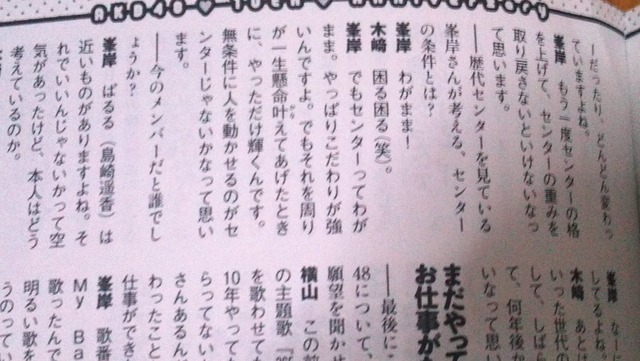 AKB48 ♥ 10th ♥ Anniversary
ーだったり、どんどん変わっ
ていますよね。
峯岸　もう一度センターの格
を上げて、センターの重みを
取り戻さないといけないなっ
て思います。
──歴代センターを見ている
峯岸さんが考える、センター
の条件とは？
峯岸　わがまま！
木﨑　困る困る（笑）。
峯岸　でもセンターってわが
まま。やっぱりこだわりが強
いんですよ。でもそれを周り
が一生懸命叶えてあげたとき
に、やっただけ輝くんです。
無条件に人を動かせるのがセ
ンターじゃないかなって思い
ます。
──今のメンバーだと誰でし
ょうか？
峯岸　ぱるる（島崎遥香）は
近いものがありますよね。そ
れでいいんじゃないかって空
気があったけど、本人はどう
考えているのか。
峯岸　な
してるよね
木﨑　あとは
いった世代
して、しば
て、何年後か
いなって思
まだやって
お仕事が
──最後に
48について、
願望を聞かせ
横山　この前
の主題歌『
を歌わせても
10年やって
らってない
さんあるん
わったこと
仕事ができ
峯岸　歌番
My Ba
歌ったんで
明るい歌を
うのって